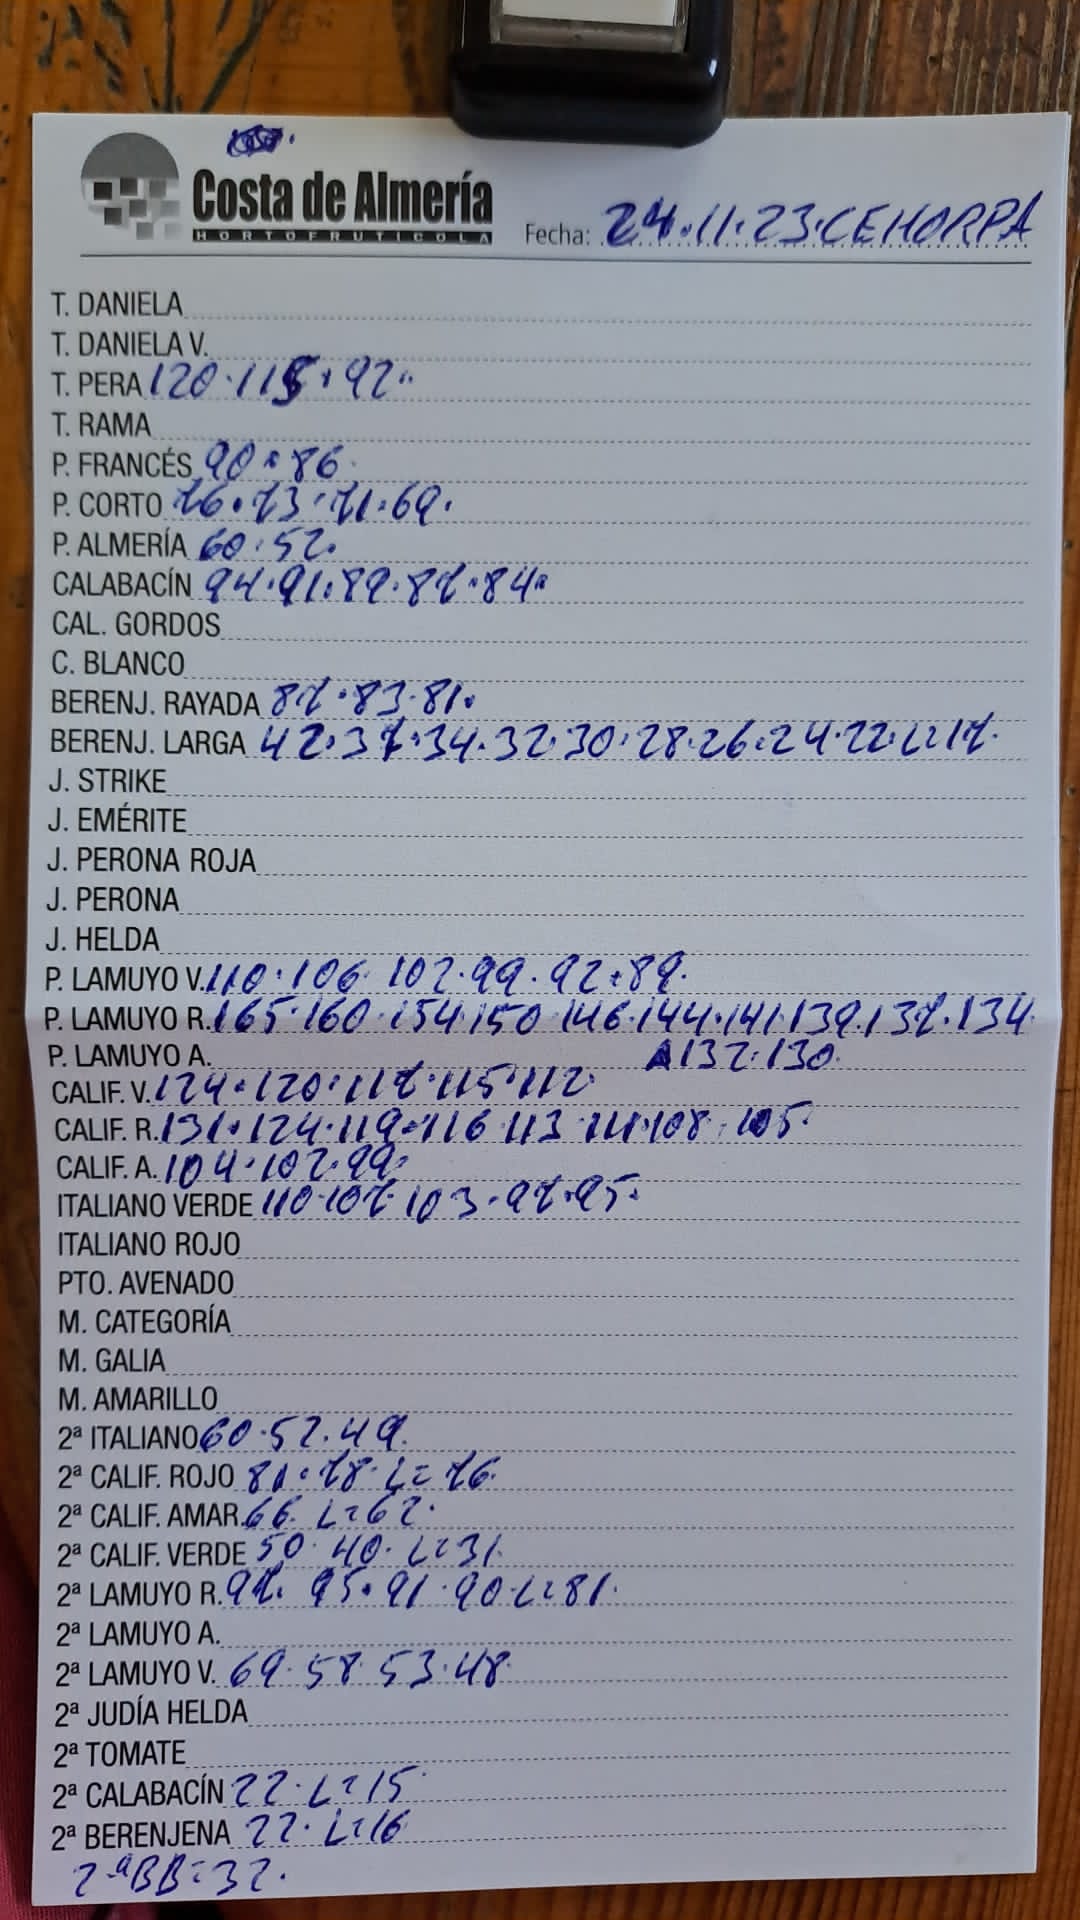 Costa de Almería
HORTOFRUTICOLA
Fecha: 24.11.23.CEHORPA
T. DANIELA
T. DANIELA V.
T. PERA 120.115.92.
T. RAMA
P. FRANCÉS 90.86.
P. CORTO 76.73.71.69.
P. ALMERÍA 60.52.
CALABACÍN 94.91.89.87.84.
CAL. GORDOS
C. BLANCO
BERENJ. RAYADA 87.83.81.
BERENJ. LARGA 42.37.34.32.30.28.26.24.22.L=17.
J. STRIKE
J. EMÉRITE
J. PERONA ROJA
J. PERONA
J. HELDA
P. LAMUYO V. 110.106.102.99.92.89.
P. LAMUYO R. 165.160.154.150.146.144.141.139.137.134.
P. LAMUYO A. 132.130.
CALIF. V. 124.120.117.115.112.
CALIF. R. 131.124.119.116.113.111.108.105.
CALIF. A. 104.102.99.
ITALIANO VERDE 110.107.103.97.95.
ITALIANO ROJO
PTO. AVENADO
M. CATEGORÍA
M. GALIA
M. AMARILLO
2ª ITALIANO 60.52.49.
2ª CALIF. ROJO 81.78.L=76.
2ª CALIF. AMAR. 66. L=62.
2ª CALIF. VERDE 50.40.L=31.
2ª LAMUYO R. 97.95.91.90.L=81.
2ª LAMUYO A.
2ª LAMUYO V. 69.58.53.48.
2ª JUDÍA HELDA
2ª TOMATE
2ª CALABACÍN 22.L=15.
2ª BERENJENA 22.L=16
2ªBB=32.